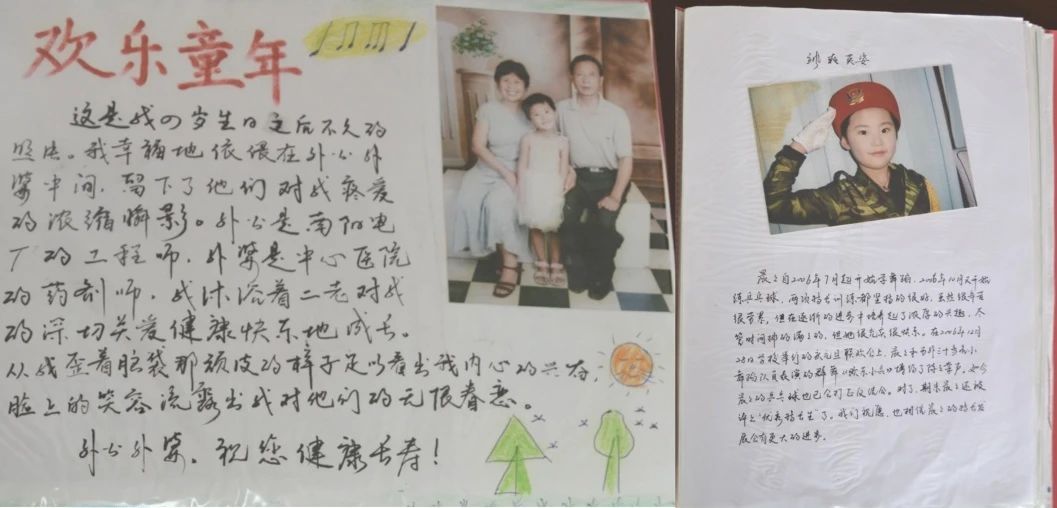 欢乐童年
这是我4岁生日之后不久的
照片。我幸福地依偎在外公外
婆中间，留下了他们对我疼爱
的浓缩瞬影。外公是南阳电
厂的工程师，外婆是中心医院
的药剂师，我沐浴着二老对我
的深切关爱健康快乐地成长。
从我歪着脑袋那顽皮的样子足以看出我内心的兴奋，
脸上的笑容流露出我对他们的无限眷恋。
外公外婆，祝您健康长寿！
飒爽英姿
晨晨自2006年7月起开始学舞蹈，2006年10月又开始
练乒乓球，两项特长训练都坚持的很好，虽然很辛苦
很劳累，但在逐渐的进步中培养起了浓厚的兴趣，尽
管时间排的满满的，但她很充实很快乐。在2006年12月
28日学校举行的庆元旦联欢会上，晨晨和另外三十多名小
舞蹈队员表演的群舞《欢乐小兵》博得了阵阵掌声。如今
晨晨的乒乓球也已会打正反混合。对了，期末晨晨还被
评上“优秀特长生”了。我们祝愿，也相信晨晨的特长发
展会有更大的进步。